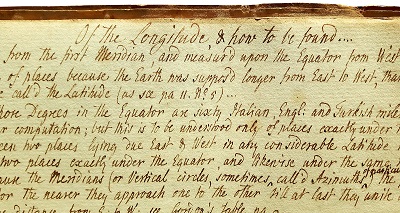 Of the Longitude, & how to be found....
from the first Meridian, and measur'd upon the Equator from West
of places because the Earth was suppos'd longer from East to West, than
call'd the Latitude (as see pa 11. No 5)...
hose Degrees in the Equator are sixty Italian, Engl: and Turkish mile
computation; but this is to be understood only of places exactly under
een two places lying due East & West in any considerable Latitude
two places exactly under the Equator, and likewise under the same
ause the Meridians (or Vertical circles sometimes call'd Azimuths) the
or the nearer they approach one to the other till at last they unite
Distance from E. to W. see Gordon's table pa